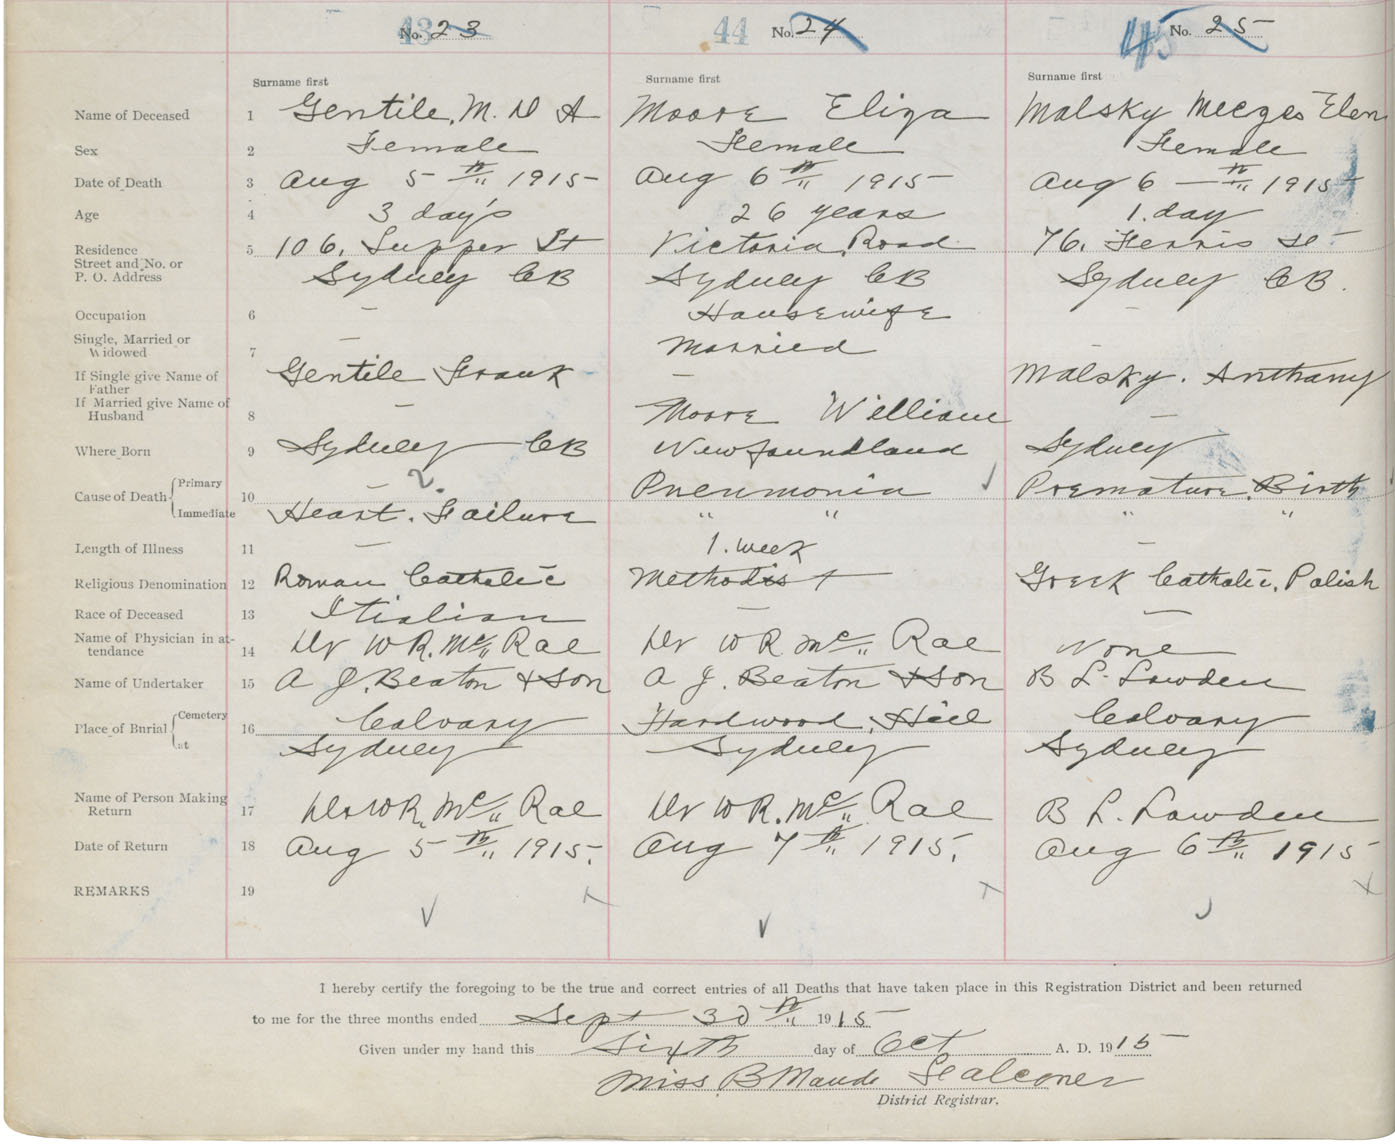 43 No. 23 44 No. 24 45 No. 25
Surname first Surname first Surname first
Name of Deceased 1 Gentile, M. D A Moore Eliza Malsky Meczes Elen
Sex 2 Female Female Female
Date of Death 3 Aug 5th 1915 Aug 6th 1915 Aug 6 - th 1915
Age 4 3 day's 26 years 1. day
Residence 5 106. Tupper St Victoria Road 76. Ferris St
Street and No. or
P. O. Address Sydney CB Sydney CB Sydney CB.
Occupation 6 - Housewife -
Single, Married or
Widowed 7 - Married -
If Single give Name of
Father Gentile Frank - Malsky. Anthany
If Married give Name of
Husband 8 - Moore William -
Where Born 9 Sydney CB Newfoundland Sydney
Cause of Death Primary 10 - ? Pneumonia Premature. Birth
Immediate Heart. Failure " " " "
Length of Illness 11 - 1. week
Religious Denomination 12 Roman Catholic Methodist Greek Catholic, Polish
Race of Deceased 13 Itialian - -
Name of Physician in at-
tendance 14 Dr W R. Mc Rae Dr W R Mc Rae None
Name of Undertaker 15 A J. Beaton & Son A J. Beaton & Son B L. Lowden
Place of Burial Cemetery 16 Calvary Hardwood, Hill Calvary
at Sydney Sydney Sydney
Name of Person Making
Return 17 Dr W R. Mc Rae Dr W R. Mc Rae B L. Lowden
Date of Return 18 Aug 5th 1915. Aug 7th 1915. Aug 6th 1915
REMARKS 19
I hereby certify the foregoing to be the true and correct entries of all Deaths that have taken place in this Registration District and been returned
to me for the three months ended Sept 30th 1915
Given under my hand this Sixth day of Oct A. D. 1915
Miss B Maude Falconer
District Registrar.